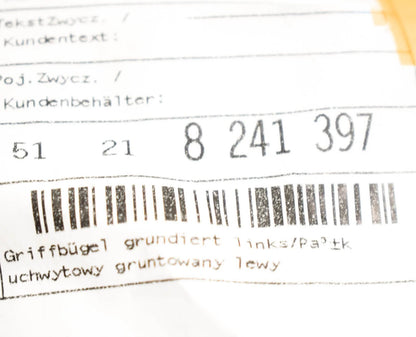 TekstZwycz. /
Kundentext:
Poj.Zwycz. /
Kundenbehälter:
51 21 8 241 397
Griffbügel grundiert links/Pa³±k
uchwytowy gruntowany lewy